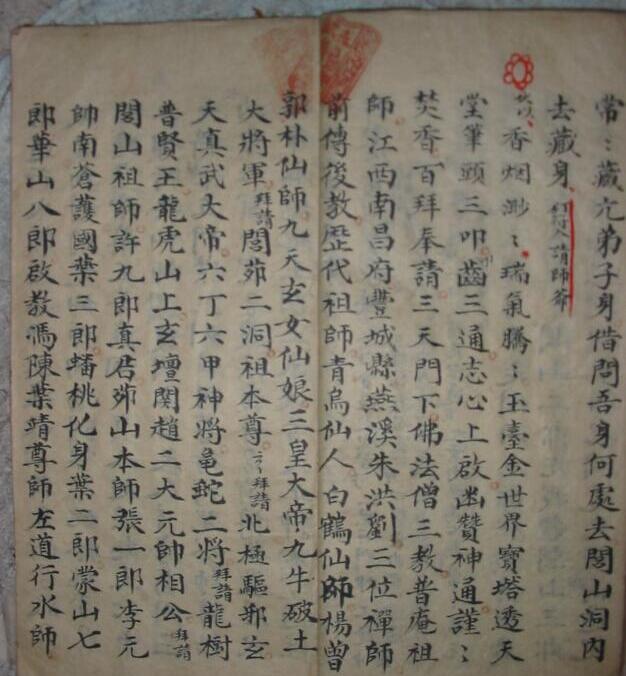 常〻藏亢弟子身借問吾身何處去閭山洞內
去藏身 請師爺
香烟渺〻瑞氣騰〻玉臺金世界寶塔透天
堂筆頭三叩齒三通志心上啟幽贊神通謹〻
焚香百拜奉請三天門下佛法僧三教普庵祖
師江西南昌府豐城縣燕溪朱洪劉三位禪師
前傳後教歷代祖師青烏仙人白鶴仙師楊曾
郭朴仙師九天玄女仙娘三皇大帝九牛破土
大將軍拜請閭茆二洞祖本尊〻拜請北極驅邪玄
天真武大帝六丁六甲神將黾蛇二將拜請龍樹
普賢王龍虎山上玄壇関趙二大元帥相公拜請
閭山祖師許九郎真君茆山本師張一郎李元
帥南蒼護國葉三郎蟠桃化身葉二郎蒙山七
郎華山八郎啟教馮陳葉靖尊師左道行水師